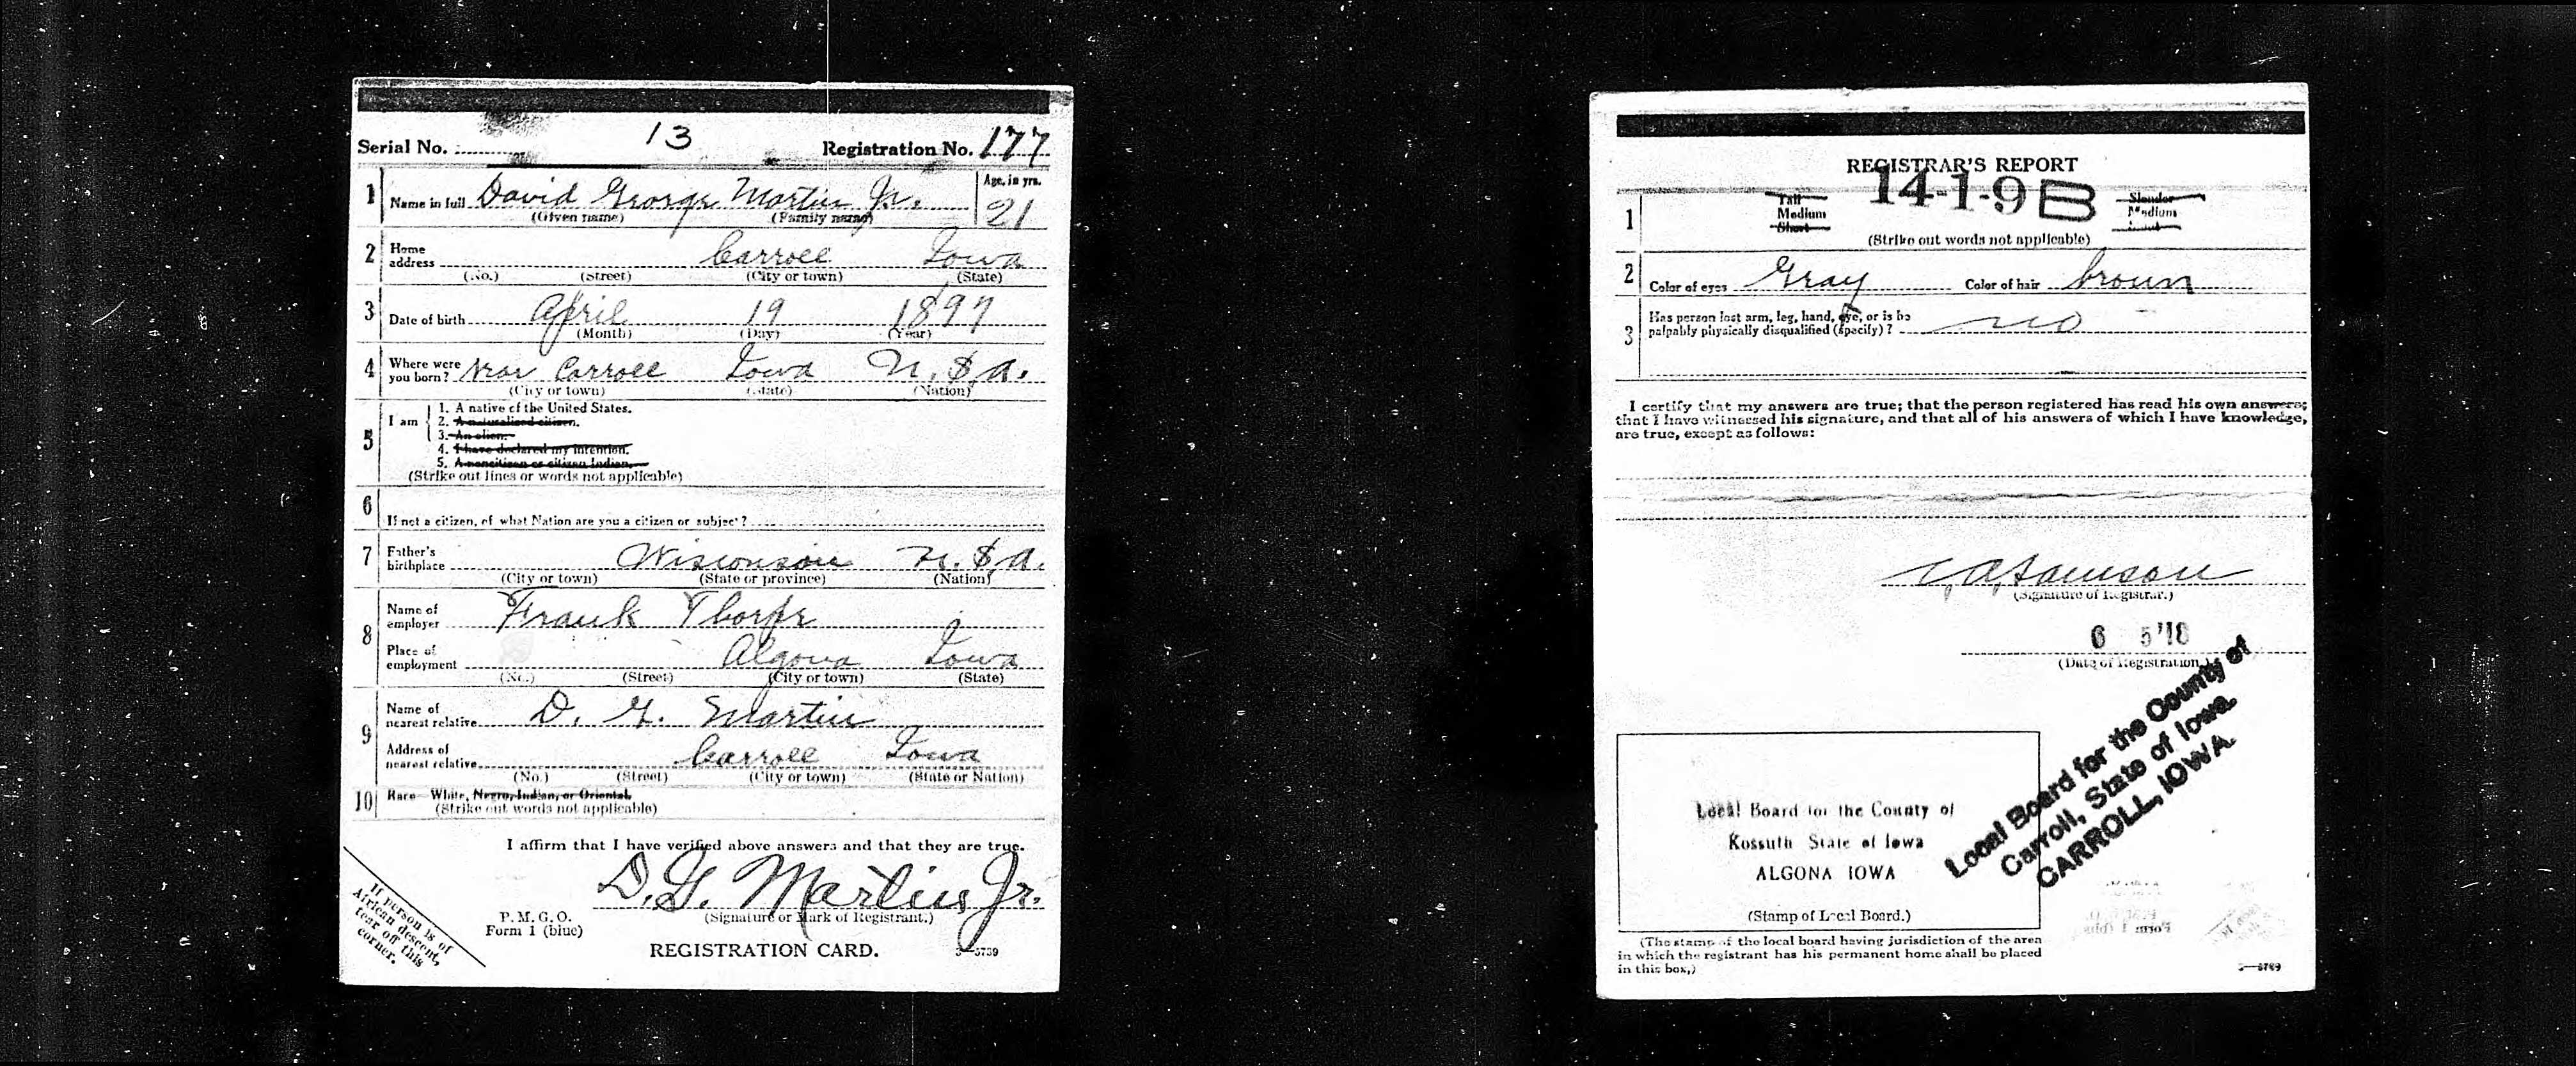 Serial No. 13 Registration No. 177
1 Name in full David George Martin Jr. Age, in yrs. 21
(Given name) (Family name)
2 Home address Carroll Iowa
(No.) (Street) (City or town) (State)
3 Date of birth April 19 1897
(Month) (Day) (Year)
4 Where were you born? Near Carroll Iowa U.S.A.
(City or town) (State) (Nation)
5 I am
1. A native of the United States.
2. A naturalized citizen.
3. An alien.
4. I have declared my intention.
5. A noncitizen or citizen Indian.
(Strike out lines or words not applicable)
6 If not a citizen, of what Nation are you a citizen or subject?
7 Father's birthplace Wisconsin U.S.A.
(City or town) (State or province) (Nation)
8 Name of employer Frank Thorpe
Place of employment Algona Iowa
(No.) (Street) (City or town) (State)
9 Name of nearest relative D. G. Martin
Address of nearest relative Carroll Iowa
(No.) (Street) (City or town) (State or Nation)
10 Race White, Negro, Indian, or Oriental
(Strike out words not applicable)
I affirm that I have verified above answers and that they are true.
D. G. Martin Jr.
(Signature or Mark of Registrant.)
P. M. G. O.
Form 1 (blue)
REGISTRATION CARD. 3—5739
If person is of
African descent,
tear off this
corner.
REGISTRAR'S REPORT
14-1-9 B
1 Tall Slender
Medium Medium
Short Stout
(Strike out words not applicable)
2 Color of eyes Gray Color of hair brown
3 Has person lost arm, leg, hand, eye, or is he
palpably physically disqualified (specify)? no
I certify that my answers are true; that the person registered has read his own answers;
that I have witnessed his signature, and that all of his answers of which I have knowledge,
are true, except as follows:
(Signature of Registrar.)
6 5 '18
(Date of Registration)
Local Board for the County of
Carroll, State of Iowa.
CARROLL, IOWA.
Local Board for the County of
Kossuth State of Iowa
ALGONA IOWA
(Stamp of Local Board.)
(The stamp of the local board having jurisdiction of the area
in which the registrant has his permanent home shall be placed
in this box.)